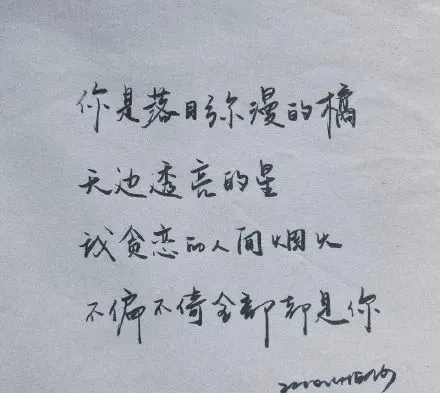 你是落日弥漫的橘
天边透亮的星
我贪恋的人间烟火
不偏不倚全部都是你